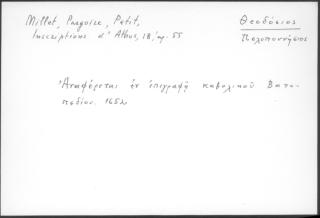 Millet, Pargoire, Petit,
Inscriptions d'Athos, 18, αρ. 55
Θεοδόσιος
Πελοποννήσιος
Ἀναφέρεται ἐν ἐπιγραφῇ καθολικοῦ Βατο-
πεδίου. 1652